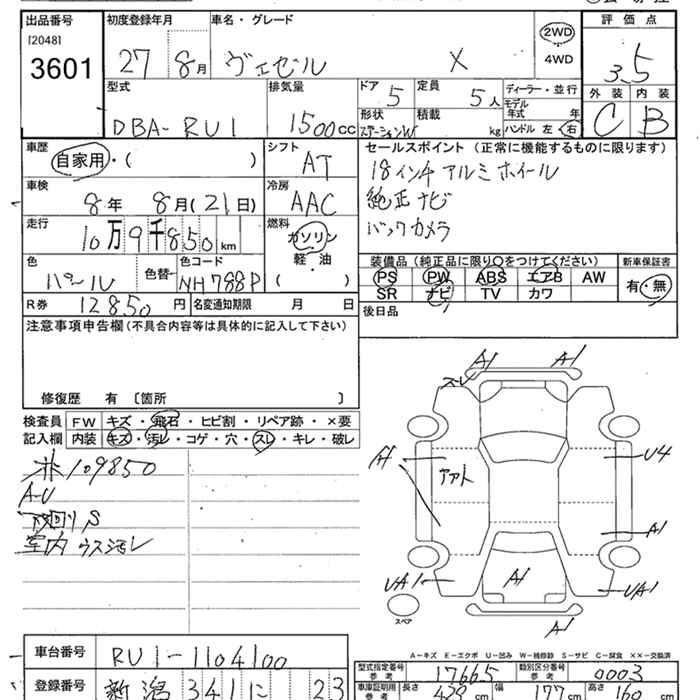 出品番号
[2048]
3601
初度登録年月
27 8月
車名・グレード
ヴェゼル X
2WD
4WD
評価点
3.5
外装 内装
C B
型式
DBA-RU1
排気量
1500cc
ドア 5
定員 5人
形状 ステーションW
積載 kg
ディーラー・並行
モデル年式 年
ハンドル 左・右
車歴
自家用・( )
シフト
AT
セールスポイント (正常に機能するものに限ります)
18インチ アルミホイール
純正ナビ
バックカメラ
車検
8年 8月(21日)
冷房
AAC
走行
10万9千850km
燃料
ガソリン
軽・油
( )
色
パール
色替
色コード
NH788P
装備品(純正品に限り○をつけてください)
PS PW ABS エアB AW
SR ナビ TV カワ
新車保証書
有・無
R券 12850円
名変通知期限 月 日
後日品
注意事項申告欄(不具合内容等は具体的に記入して下さい)
修復歴 有 〔箇所 〕
検査員
記入欄
FW キズ・飛石・ヒビ割・リペア跡・×要
内装 キズ・汚レ・コゲ・穴・スレ・キレ・破レ
109850
A・U
下回りS
室内 ウスヨゴレ
A1 A1
スレ
A1
ヤアト
U4
A1
UA1
A1
UA1
A1
スペア
A-キズ E-エクボ U-凹み W-補修跡 S-サビ C-腐食 XX-交換済
車台番号
RU1-1104100
登録番号
新潟 341 に 23
型式指定番号 参考
17665
類別区分番号 参考
0003
車庫証明用 参考
長さ 429cm
幅 177cm
高さ 160cm